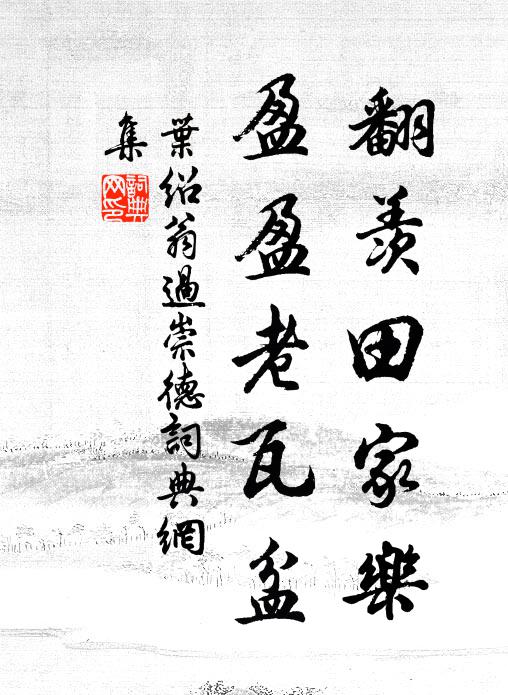 翻羨田家樂
盈盈老瓦盆
葉紹翁過崇德詞典網
集
詞典
网印